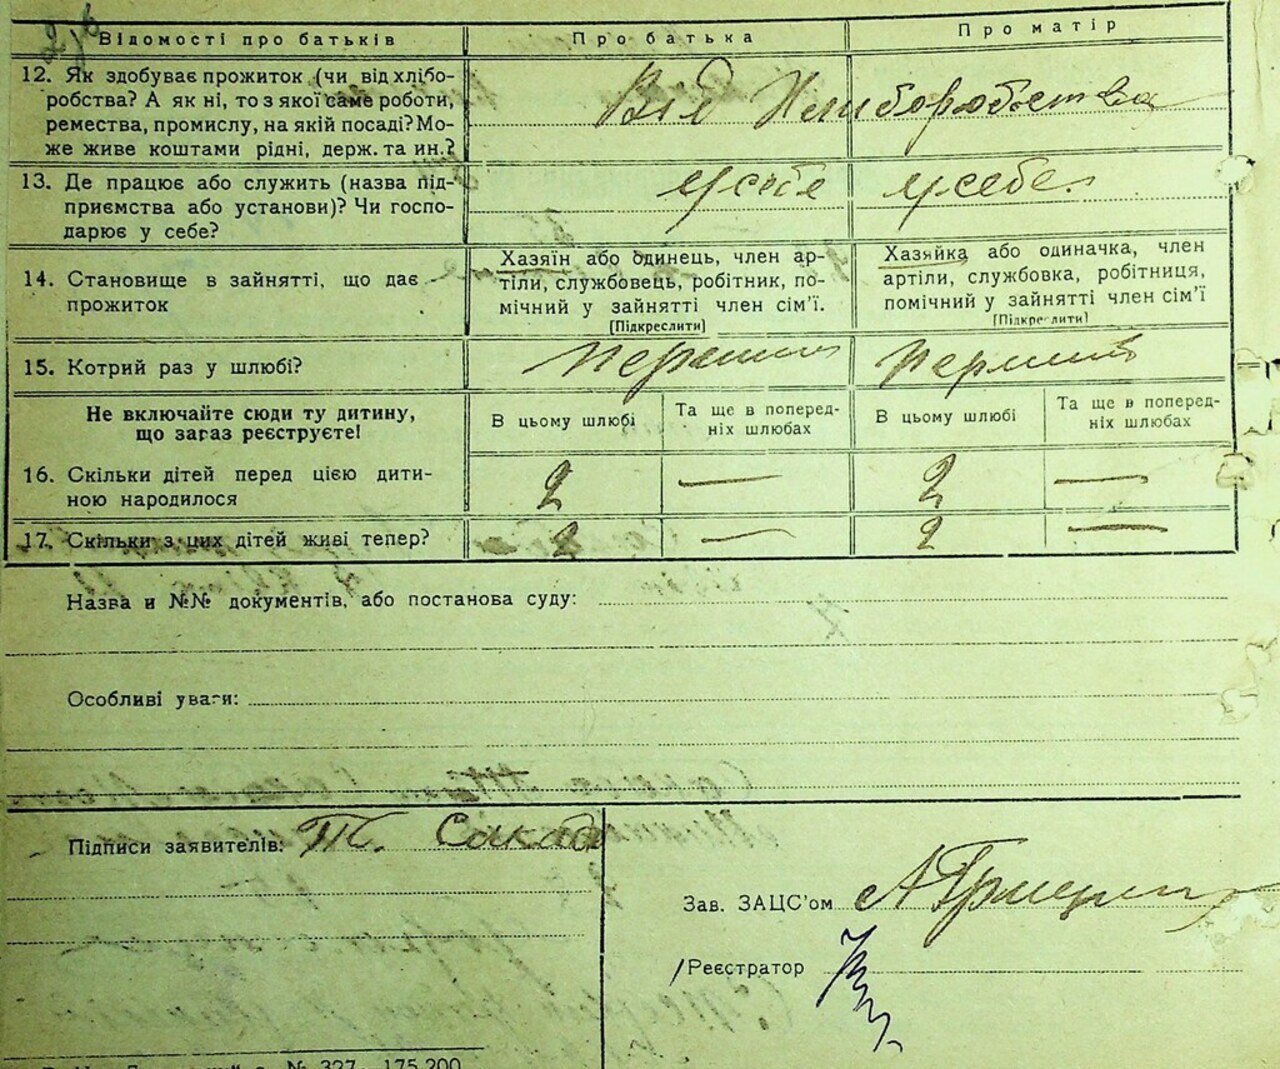 Відомості про батьків
Про батька
Про матір
12. Як здобуває прожиток (чи від хлібо-
робства? А як ні, то з якої саме роботи,
ремества, промислу, на якій посаді? Мо-
же живе коштами рідні, держ. та ин.?
Від Хліборобства
13. Де працює або служить (назва під-
приємства або установи)? Чи госпо-
дарює у себе?
у себе
у себе
14. Становище в зайнятті, що дає
прожиток
Хазяїн або одинець, член ар-
тіли, службовець, робітник, по-
мічний у зайнятті член сім'ї.
[Підкреслити]
Хазяйка або одиначка, член
артіли, службовка, робітниця,
помічний у зайнятті член сім'ї
[Підкреслити]
15. Котрий раз у шлюбі?
перший
перший
Не включайте сюди ту дитину,
що зараз реєструєте!
В цьому шлюбі
Та ще в поперед-
ніх шлюбах
В цьому шлюбі
Та ще в поперед-
ніх шлюбах
16. Скільки дітей перед цією дити-
ною народилося
2
—
2
—
17. Скільки з цих дітей живі тепер?
2
—
2
—
Назва и №№ документів, або постанова суду:
Особливі уваги:
Підписи заявителів:
Зав. ЗАЦС'ом
Реєстратор
№ 327. 175.200